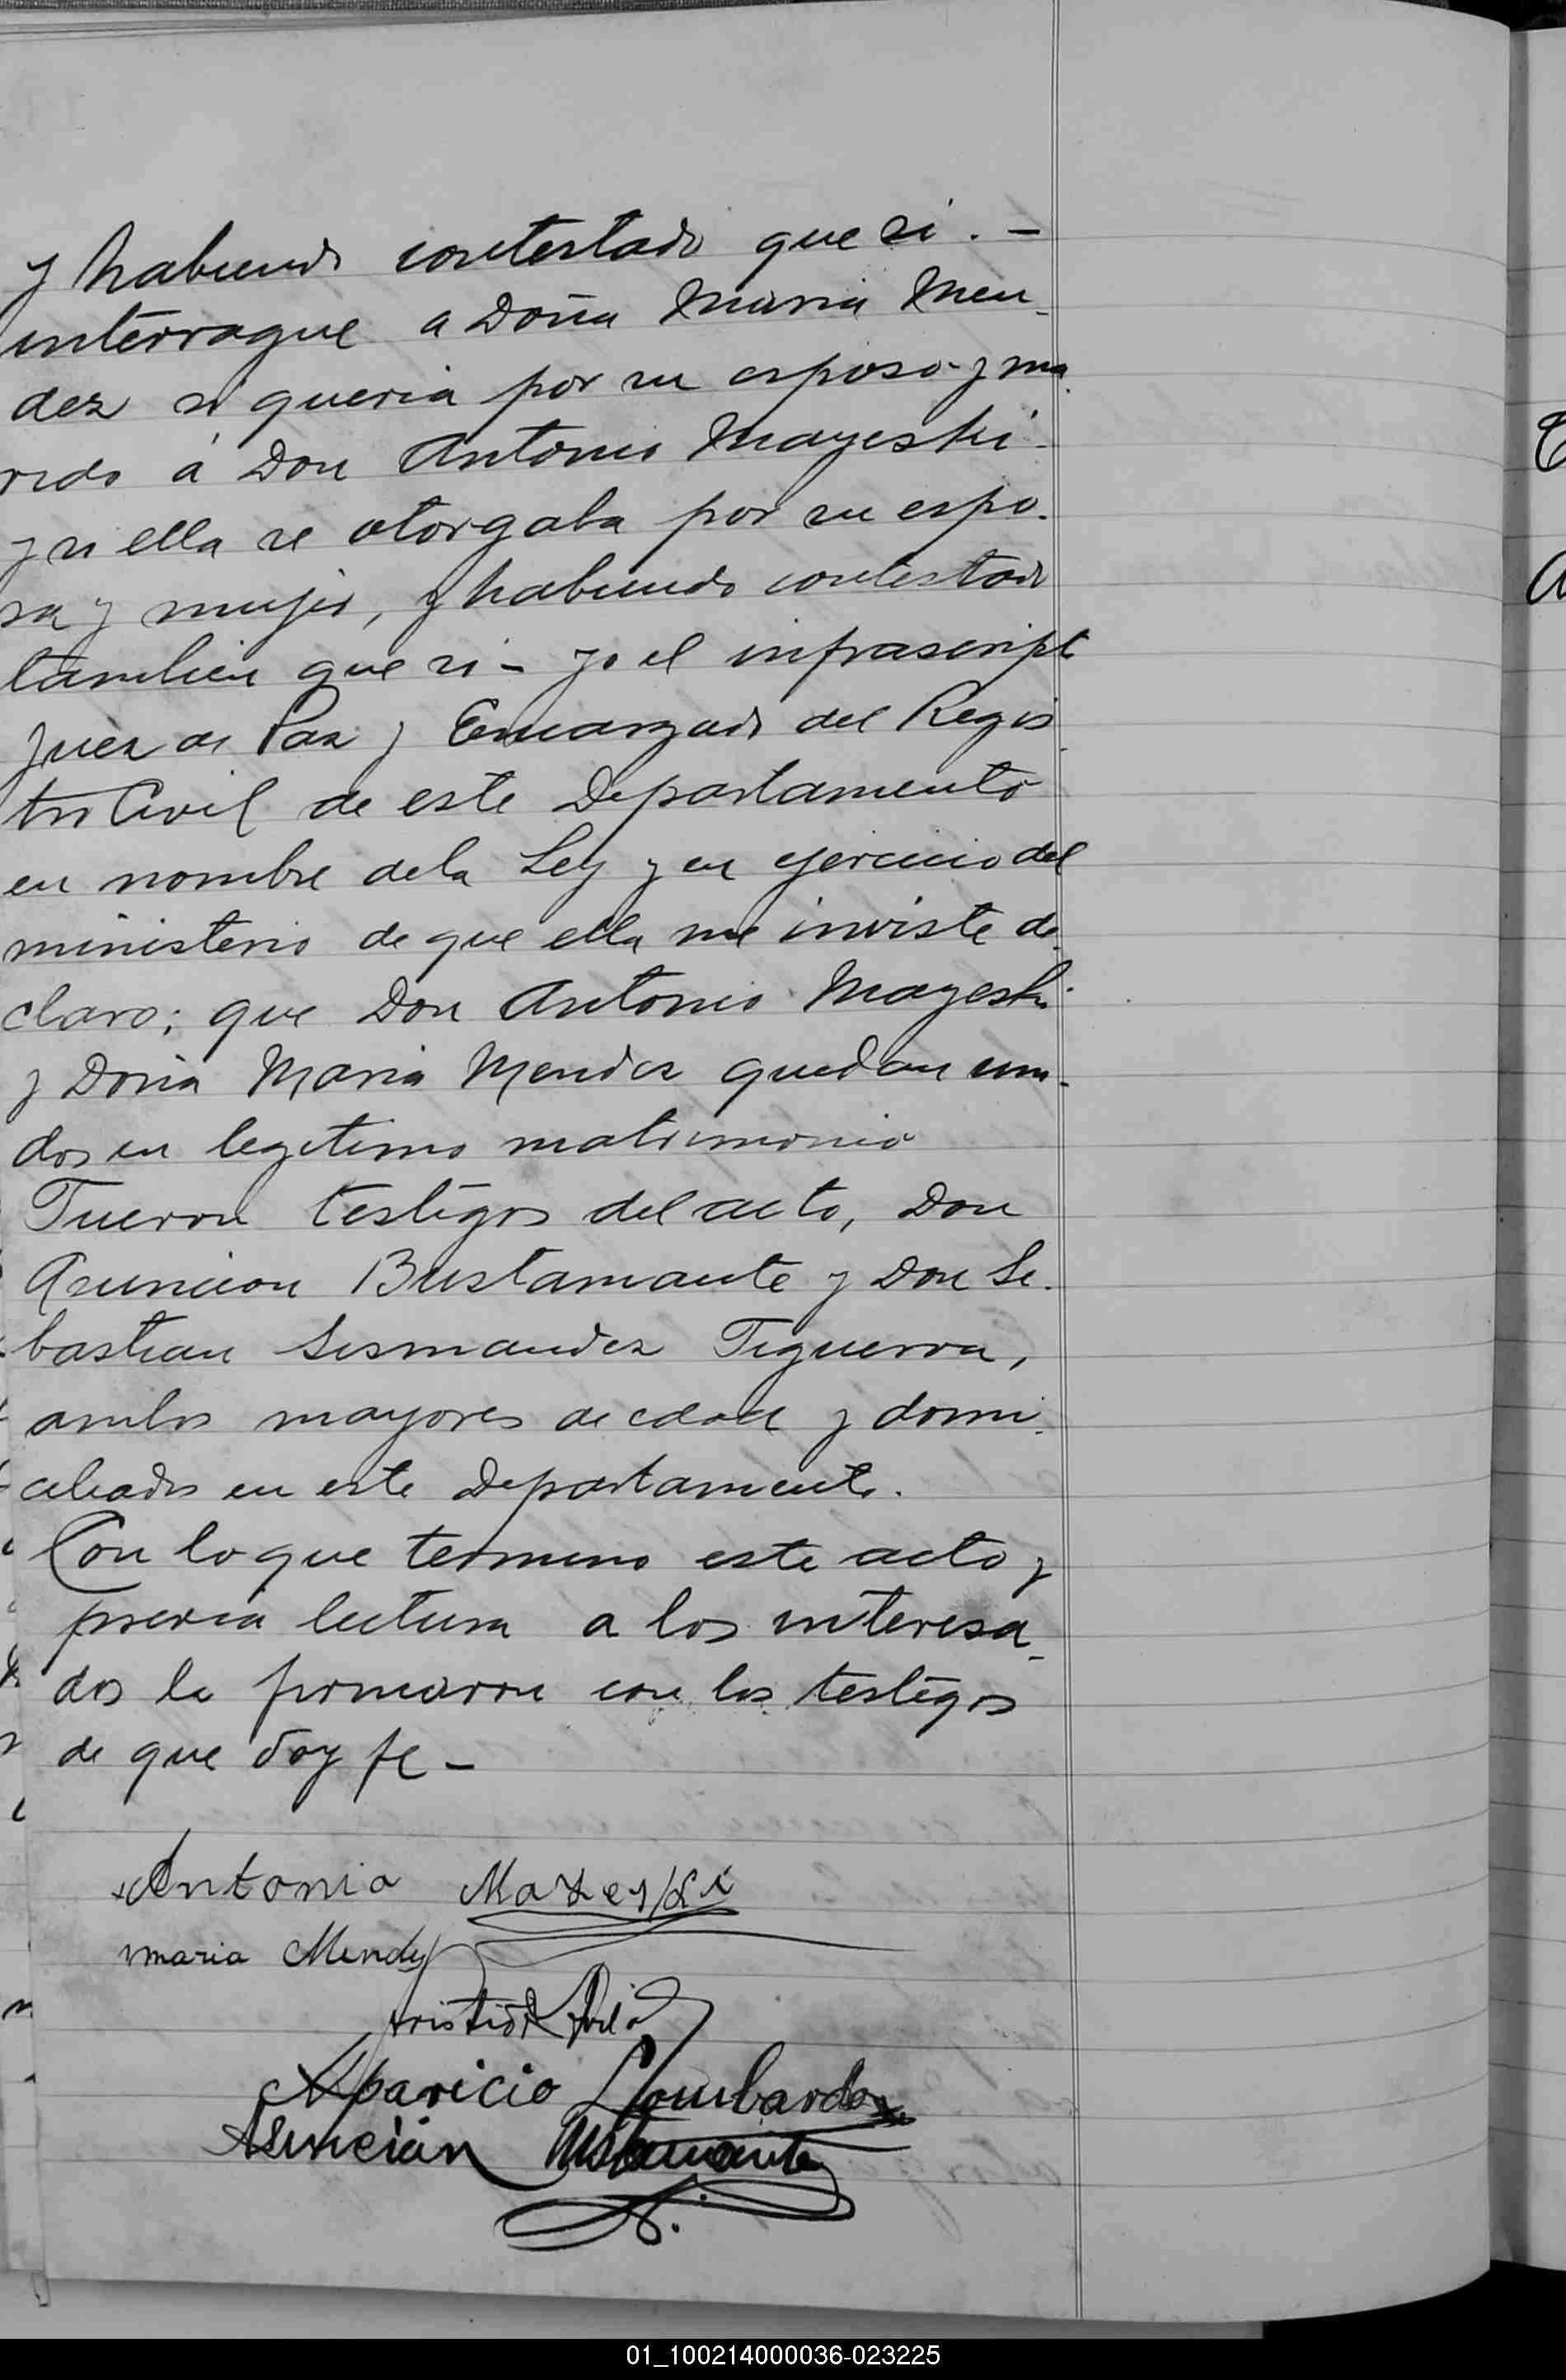 y habiendo contestado que si. -
interrogue a Doña Maria Men-
dez si queria por su esposo y ma-
rido á Don Antonio Mayeski
y si ella se otorgaba por su espo-
sa y mujer, y habiendo contestado
tambien que si - yo el infrascripto
Juez de Paz y Encargado del Regis-
tro Civil de este Departamento
en nombre de la Ley y en ejercicio del
ministerio de que ella me inviste de-
claro; que Don Antonio Mayeski
y Doña Maria Mendez quedan uni-
dos en legitimo matrimonio
Fueron testigos del acto, Don
Asuncion Bustamante y Don Se-
bastian Sismandez Figueroa,
ambos mayores de edad y domi-
ciliados en este Departamento.
Con lo que termino este acto y
previa lectura a los interesa-
dos la firmaron con los testigos
de que doy fe -
Antonio
maria Mendez
Aparicio Lombardo
Asunción Bustamante
E
A
01_100214000036-023225